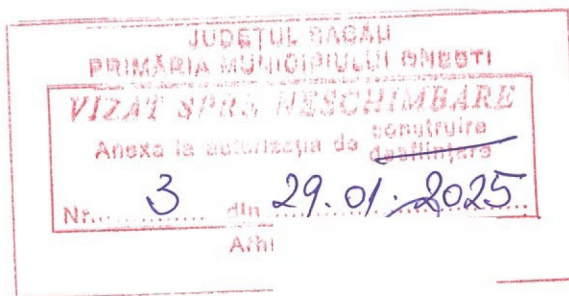 JUDEȚUL BACĂU
PRIMĂRIA MUNICIPIULUI ONEȘTI
VIZAT SPRE NESCHIMBARE
Anexa la autorizația de construire
desființare
Nr. 3 din 29.01.2025
Arhi